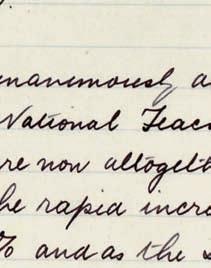 unanimously a
National Teac
are non altoget
the rapid incre
% and as the s